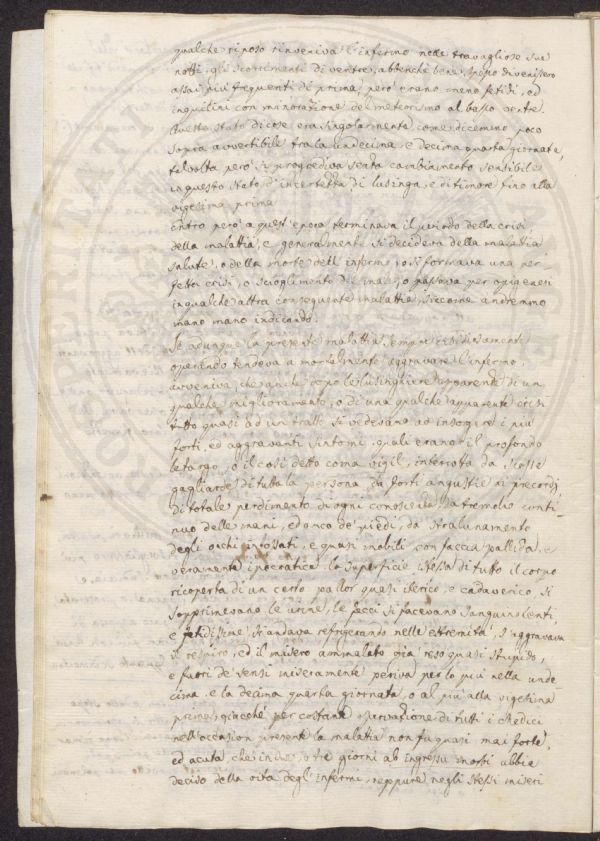 qualche riposo rinveniva l'infermo nelle travagliose sue
notti, gli scorrimenti di ventre, abbenchè bene spesso divenissero
assai più frequenti di prima, però erano meno fetidi, ed
inquilini con minorazione del meteorismo al basso ventre.
Questo stato di cose era singolarmente come dicemmo poco
sopra avvertibile tra la undecima, e decima quarta giornata,
talvolta però si progrediva senza cambiamento sensibile
in questo stato d'incertezza di lusinga, e di timore fino alla
vigesima prima
Entro però a quest'epoca terminava il periodo della crisi
della malattia, e generalmente si decideva della malattia
salute, o della morte dell'infermo, o si formava una per
fetta crisi, o scioglimento del male, o passava per epigenesi
in qualche altra conseguente malattia, siccome andremmo
mano mano indicando.
Se adunque la presente malattia sempre
operando tendeva a mortalmente aggravare l'infermo,
avveniva, che anche dopo le lusinghiere apparenze di un
qualche miglioramento, o di una qualche apparente crisi
tutto quasi ad un tratto si vedevano ad insorgere i più
forti, ed aggravanti sintomi, quali erano il profondo
letargo, o il così detto coma vigil, interrotto da scosse
gagliarde di tutta la persona, da forti angustie ai precordj
di totale perdimento di ogni conoscenza, da tremolio conti
nuo delle mani, ed anco de' piedi, da stralunamento
degli occhi infossati, e quasi mobili con faccia pallida, e
veramente ipocratica, la superficie istessa di tutto il corpo
ricoperta di un certo pallor quasi iterico, e cadaverico, si
sopprimevano le urine, le fecci si facevano sanguinolenti,
e fetidissime, si andava refrigerando nelle estremità, s'aggravava
il respiro, ed il misero ammalato già reso quasi stupido,
e fuori de' sensi miseramente periva per lo più nella unde
cima, e la decima quarta giornata, o al più alla vigesima
prima, giacchè per costante osservazione di tutti i Medici
nell'occasion presente la malatia non fu quasi mai forte,
ed acuta, che in due, o tre giorni ab ingressu morbi abbia
deciso della vita degl'infermi, neppure negli stessi miseri